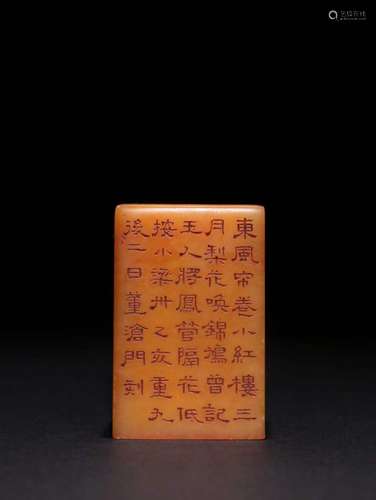 東風帘卷小紅樓三
月梨花喚錦鳩曾記
玉人將鳳管隔花低
按小梁州乙亥重九
後二日董滄門刻